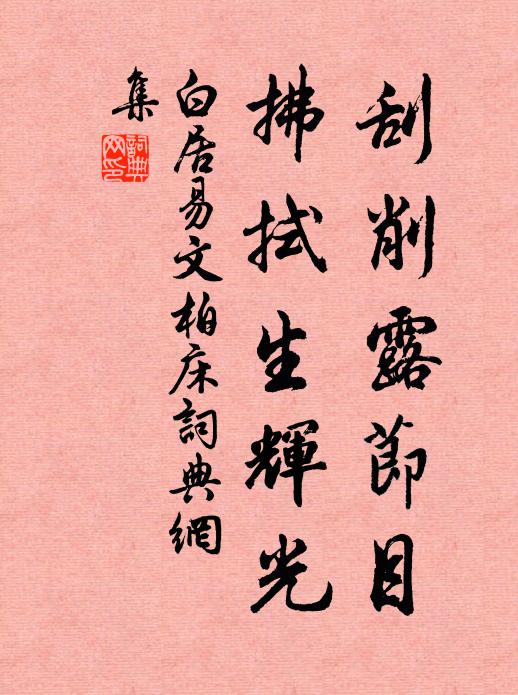 刮削露節目
拂拭生輝光
白居易文柏床詞典網
集
詞典網印